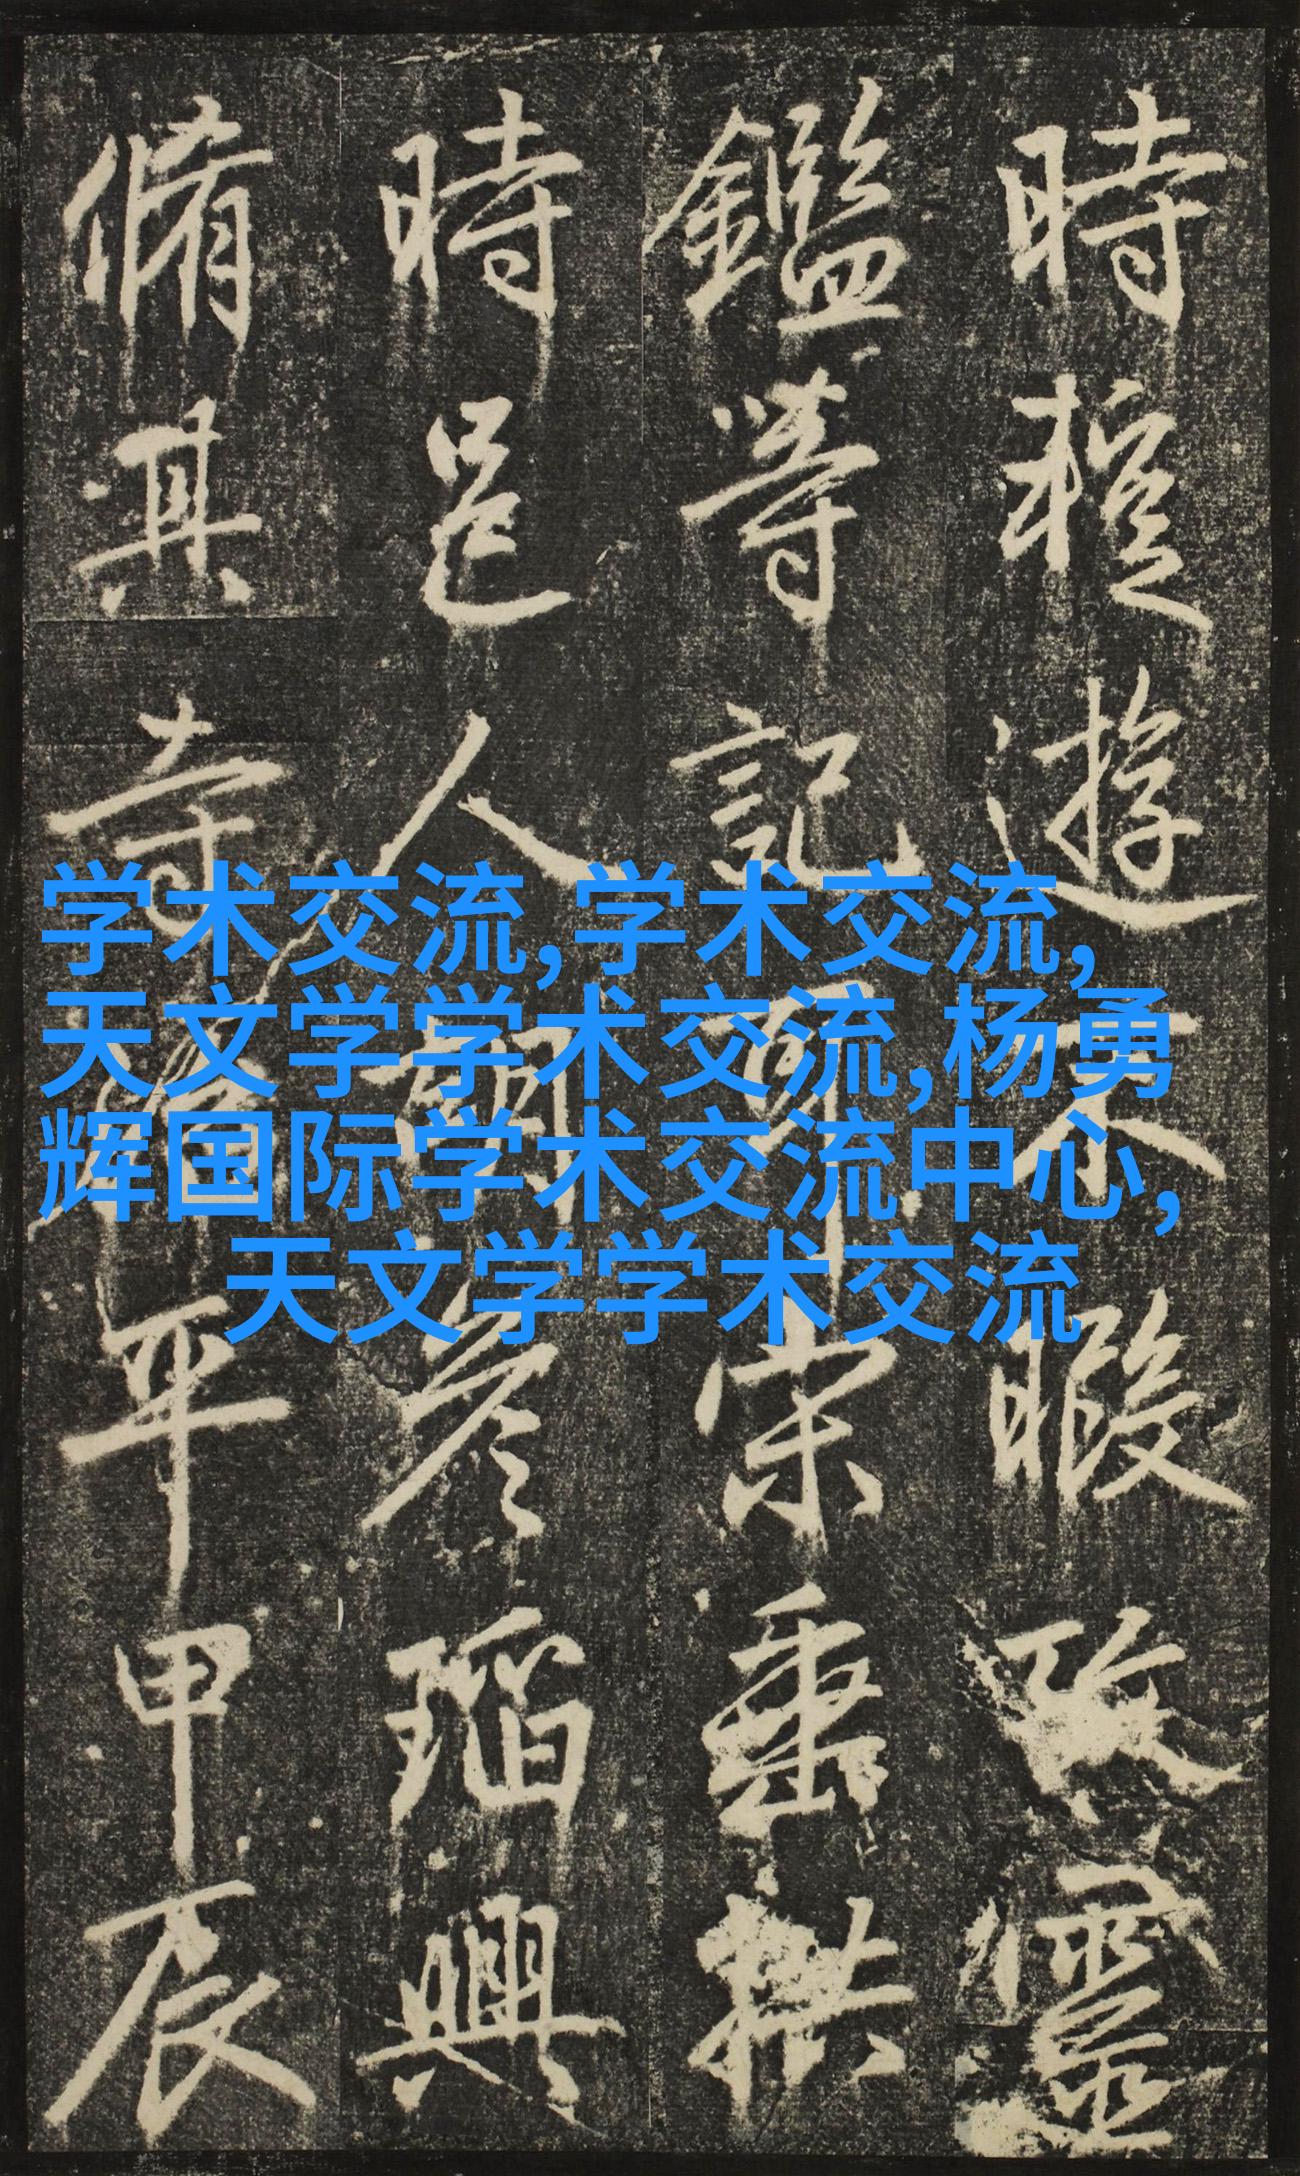 時遊不暇
鑑等記宋垂拱
時邑人彦瑫興
脩其寺平甲辰
学术交流,学术交流,
天文学学术交流,杨勇
辉国际学术交流中心,
天文学学术交流